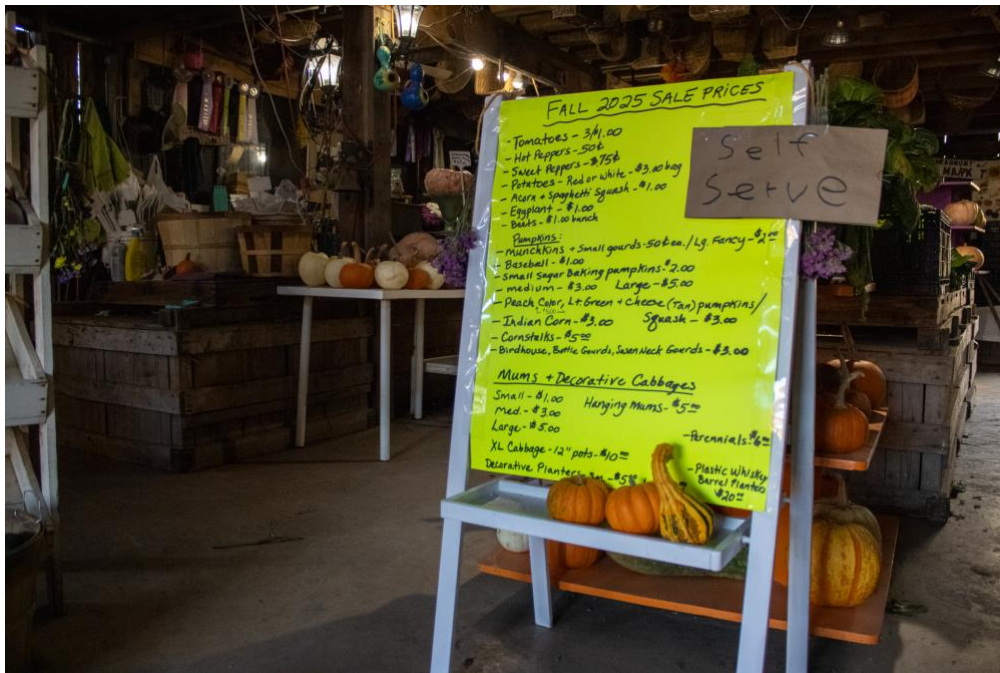 FALL 2025 SALE PRICES
- Tomatoes - 3/$1.00
- Hot Peppers - 50¢
- Sweet Peppers - $75¢
- Potatoes - Red or White - $3.00 bag
- Acorn + Spaghetti Squash - $1.00
- Eggplant - $1.00
- Beets - $1.00 bunch
Pumpkins:
- Munchkins + Small gourds - 50¢ ea. / Lg. Fancy - $2.00
- Baseball - $1.00
- Small Sugar Baking pumpkins - $2.00
- medium - $3.00 Large - $5.00
- Peach Color, Lt. Green + Cheese (Tan) pumpkins /
Squash - $3.00
- Indian Corn - $3.00
- Cornstalks - $5.00
- Birdhouse, Bottle Gourds, Swan Neck Gourds - $3.00
Mums + Decorative Cabbages
Small - $1.00
Hanging Mums - $5.00
Med. - $3.00
Large - $5.00
- Perennials - $6.00
XL Cabbage - 12" pots - $10.00
Decorative Planters
- Plastic Whiskey
Barrel Planters
$20.00
Self
Serve